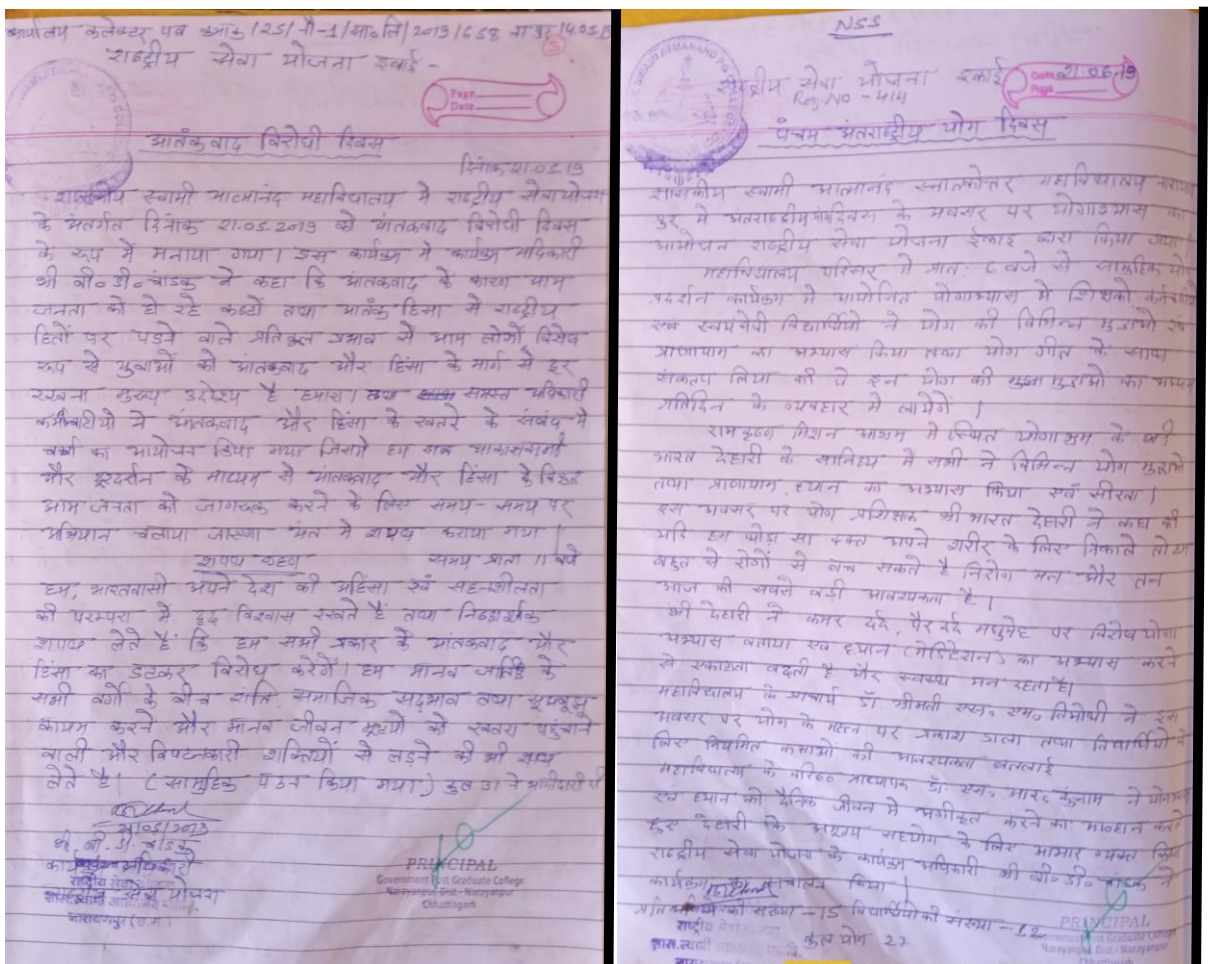 कार्यालय कलेक्टर पत्र क्रमांक/251/नौ-1/सा०लि/2019/658 ना पुर/14.05.19
राष्ट्रीय सेवा योजना इकाई -
Page
Date
आतंकवाद विरोधी दिवस
दिनांक 21.05.19
शासकीय स्वामी आत्मानंद महाविद्यालय में राष्ट्रीय सेवा योजना
के अंतर्गत दिनांक 21.05.2019 को आंतकवाद विरोधी दिवस
के रूप में मनाया गया। इस कार्यक्रम में कार्यक्रम अधिकारी
श्री बी० डी० चांडक ने कहा कि आंतकवाद के कारण आम
जनता को हो रहे कष्टों तथा आतंक हिंसा से राष्ट्रीय
हितों पर पड़ने वाले प्रतिकूल प्रभाव से आम लोगों विशेष
रूप से युवाओं को आंतकवाद और हिंसा के मार्ग से दूर
रखना मुख्य उद्देश्य है हमारा। समस्त अधिकारी
कर्मचारीयों में आंतकवाद और हिंसा के खतरे के संबंध में
चर्चा का आयोजन किया गया जिसमें हम सब आकाशवाणी
और दूरदर्शन के माध्यम से आंतकवाद और हिंसा के विरूद्ध
आम जनता को जागरूक करने के लिए समय-समय पर
अभियान चलाया जाएगा अंत में शपथ कराया गया।
शपथ ग्रहण समय प्रातः 11 बजे
हम, भारतवासी अपने देश की अहिंसा एवं सहनशीलता
की परम्परा में दृढ़ विश्वास रखते हैं तथा निष्ठापूर्वक
शपथ लेते हैं कि हम सभी प्रकार के आंतकवाद और
हिंसा का डटकर विरोध करेंगे। हम मानव जाति के
सभी वर्गों के बीच शांति, समाजिक सद्भाव तथा सूझबूझ
कायम करने और मानव जीवन मूल्यों को खतरा पहुंचाने
वाली और विघटनकारी शक्तियों से लड़ने की भी शपथ
लेते है। (सामुहिक पठन किया गया) कुल 31 ने भागीदारी दी
21/05/2019
श्री बी. डी. चांडक
कार्यक्रम अधिकारी
राष्ट्रीय सेवा योजना
नारायणपुर (छ.ग.)
PRINCIPAL
Government Post Graduate College
Narayanpur Dist.- Narayanpur
Chhattisgarh
NSS
राष्ट्रीय सेवा योजना इकाई
Reg.No - 414
Date 21.06.19
Page
पंचम अंतराष्ट्रीय योग दिवस
शासकीय स्वामी आत्मानंद स्नातकोत्तर महाविद्यालय नारायण
पुर में अंतराष्ट्रीय योग दिवस के अवसर पर योगाभ्यास का
आयोजन राष्ट्रीय सेवा योजना ईकाई द्वारा किया गया।
महाविद्यालय परिसर में प्रातः 6 बजे से सामुहिक योग
प्रदर्शन कार्यक्रम में आयोजित योगाभ्यास में शिक्षकों कर्मचारियों
एवं स्वयंसेवी विद्यार्थियों ने योग की विभिन्न मुद्राओं एवं
प्राणायाम का अभ्यास किया तथा योग गीत के साथ
संकल्प लिया की वे इन योग की मुद्राओं का अभ्यास
प्रतिदिन के व्यवहार में लायेगें।
रामकृष्ण मिशन आश्रम में स्थित योगाश्रम के श्री
भारत देहारी के सानिध्य में सभी ने विभिन्न योग मुद्राओं
तथा प्राणायाम, ध्यान का अभ्यास किया एवं सीखा।
इस अवसर पर योग प्रशिक्षक श्री भारत देहारी ने कहा की
यदि हम थोड़ा सा वक्त अपने शरीर के लिए निकाले तो हम
बहुत से रोगों से बच सकते है निरोग मन और तन
आज की सबसे बड़ी आवश्यकता है।
श्री देहारी ने कमर दर्द, पैर दर्द मधुमेह पर विशेष योगा
अभ्यास बताया एवं ध्यान (मेडिटेशन) का अभ्यास करने
से एकाग्रता बढ़ती है और स्वस्थ्य मन रहता है।
महाविद्यालय के प्राचार्य डॉ. श्रीमती एस० एम० तिमोथी ने इस
अवसर पर योग के महत्व पर प्रकाश डाला तथा विद्यार्थियों के
लिए नियमित कक्षाओं की आवश्यकता बतलाई
महाविद्यालय के वरिष्ठ प्राध्यापक डॉ. एस० आर० कुंजाम ने योगाभ्यास
एवं ध्यान को दैनिक जीवन में अंगीकृत करने का आव्हान करते
हुए देहारी के सहयोग के लिए आभार व्यक्त किया
राष्ट्रीय सेवा योजना के कार्यक्रम अधिकारी श्री बी० डी० चांडक ने
कार्यक्रम संचालन किया।
संख्या - 15 विद्यार्थियों की संख्या - 12
कुल योग 27
राष्ट्रीय सेवा
शास. स्वामी
PRINCIPAL
Government Post Graduate College
Narayanpur Dist.- Narayanpur
Chhattisgarh